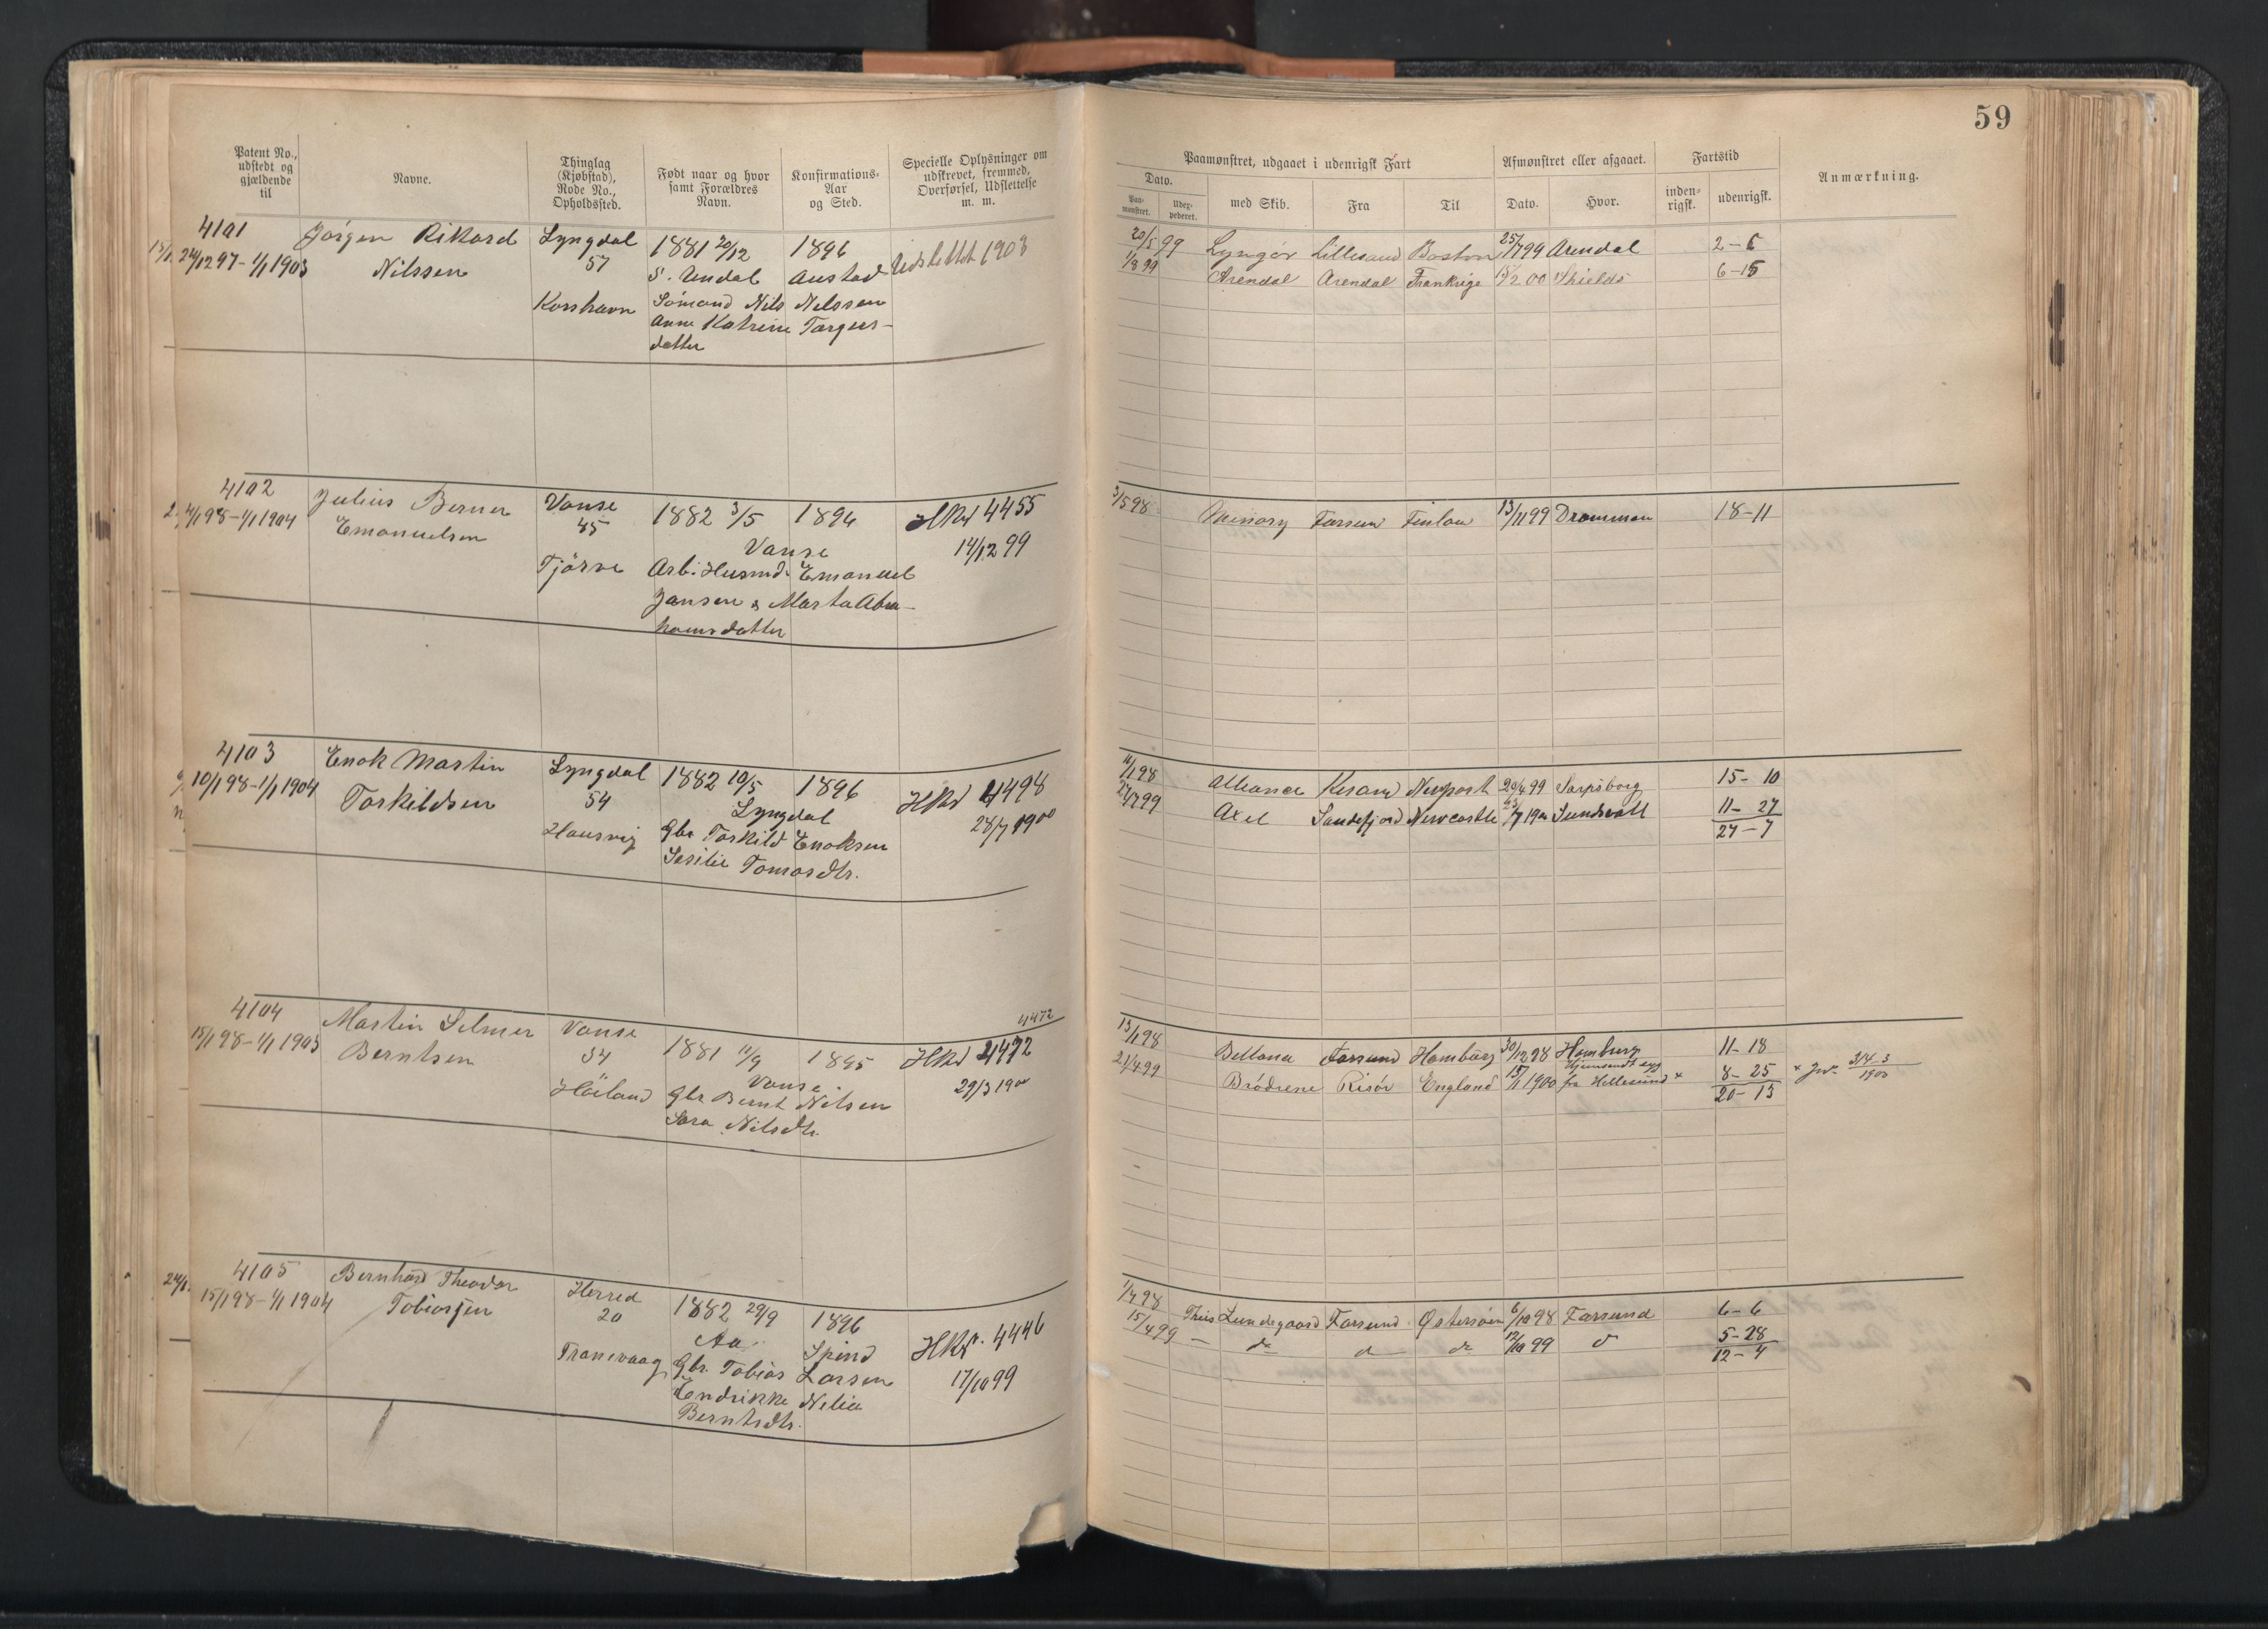 59
Patent No., udstedt og gjældende til
Navne.
Thinglag (Kjøbstad), Rode No., Opholdssted.
Født naar og hvor samt Forældres Navn.
Konfirmations-Aar og Sted.
Specielle Oplysninger om udskrevet, fremmed, Overførsel, Udslettelse m. m.
Paamønstret, udgaaet i udenrigsk Fart
Afmønstret eller afgaaet.
Fartstid
Anmærkning.
Dato.
Paa-mønstret.
Udex-pederet.
med Skib.
Fra
Til
Dato.
Hvor.
inden-rigsk.
udenrigsk.
4101 Jørgen Rikard Lyngdal 1881 20/12 1896 Udslettet 1903
24/12 97 - 1/1 1903 Nilssen 57 S. Undal Austad
Korshavn Sömand Nils Nilssen
Anne Katrine Targers-
datter
20/5 99 Lyngör Lillesand Boston 25/7 99 Arendal 2-6
1/8 99 Arendal Arendal Frankrige 15/2 00 Shields 6-15
4102 Julius Berner Vanse 1882 3/5 1896 HKd 4455
4/1 98 - 1/1 1904 Emanuelsen 45 Vanse 14/12 99
Tjörve Arb. Husmd. Emanuel
Jansen & Marta Abra-
hamsdatter
3/5 98 Farsun Finlan 13/11 99 Drammen 18-11
4103 Enok Martin Lyngdal 1882 10/5 1896 HKd 4498
10/1 98 - 1/1 1904 Torkildsen 54 Lyngdal 28/7 1900
Hausvig Gbr Torkild Enoksen
Sesilie Tomasdtr.
11/1 98 Alliance Krsand Newport 20/4 99 Sarpsborg 15-10
27/7 99 Axel Sandefjord Newcastle 1900 Sundsvall 11-27
27-7
4472
4104 Martin Selmer Vanse 1881 11/9 1895 HKd 4472
15/1 98 - 1/1 1903 Berntsen 34 Vanse 29/3 1900
Höiland Gbr Bernt Nilsen
Sara Nilsdtr.
13/1 98 Bellona Farsund Hamburg 30/12 98 Hamburg 11-18
21/4 99 Brödrene Risör England 15/1 1900 Hjemsendt syg fra Hellesund x 8-25
20-13
x Jnr 314-3
1900
4105 Bernhard Theodor Herred 1882 29/9 1896 HKd. 4446
15/1 98 - 1/1 1904 Tobiassen 20 Aa Spind 17/10 99
Tranevaag Gbr. Tobias Larsen
Endrikke Nilia
Berntsdtr.
1/4 98 Thris Lundegaard Farsund Østersöen 6/10 98 Farsund 6-6
15/4 99 — do d do 12/10 99 d 5-28
12-4